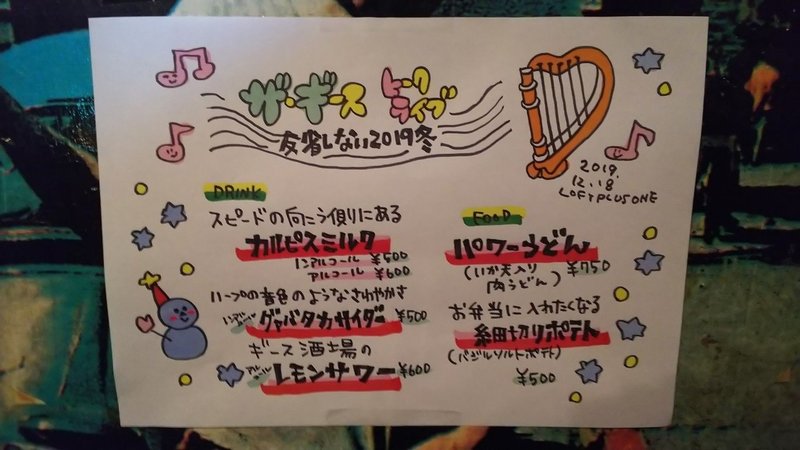 ザ・ギース トークライブ
反省しない2019冬
2019.
12.18
LOFTPLUSONE
DRINK
スピードの向こう側にある
カルピスミルク
ノンアルコール ¥500
アルコール ¥600
ハープの音色のようなさわやかさ
グァバタカサイダー ¥500
ギース酒場の
レモンサワー ¥600
FOOD
パワーうどん
(いか天入り
肉うどん) ¥750
お弁当に入れたくなる
細切りポテト
(バジルソルトポテト)
¥500